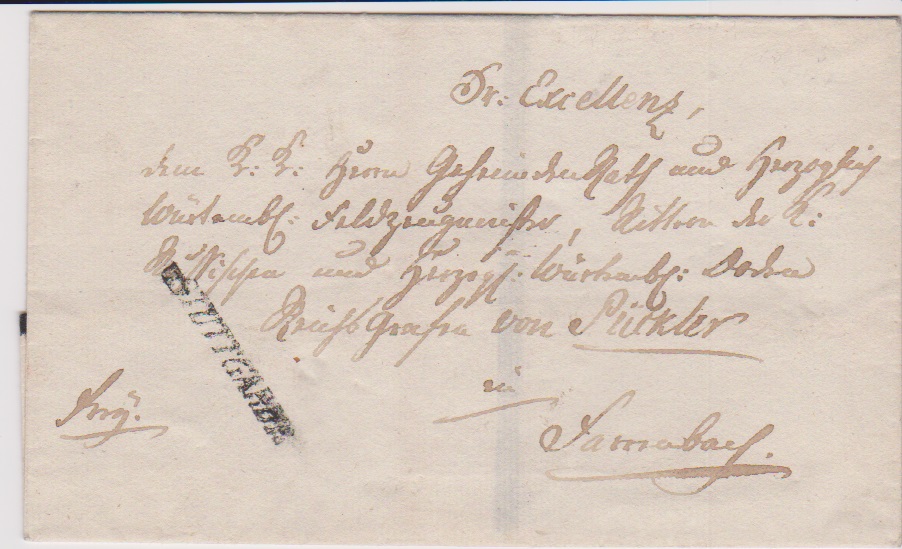 Sr: Excellenz,
dem K: K: Herrn GeheimdenRath und Herzoglich
Würtembl: Feldzeugmeister, Rittern der K:
Russischen und Herzogl: Würtembl: Orden
Reichs Grafen von Pückler
in
Farrenbach.
frey.
STUTTGARDT